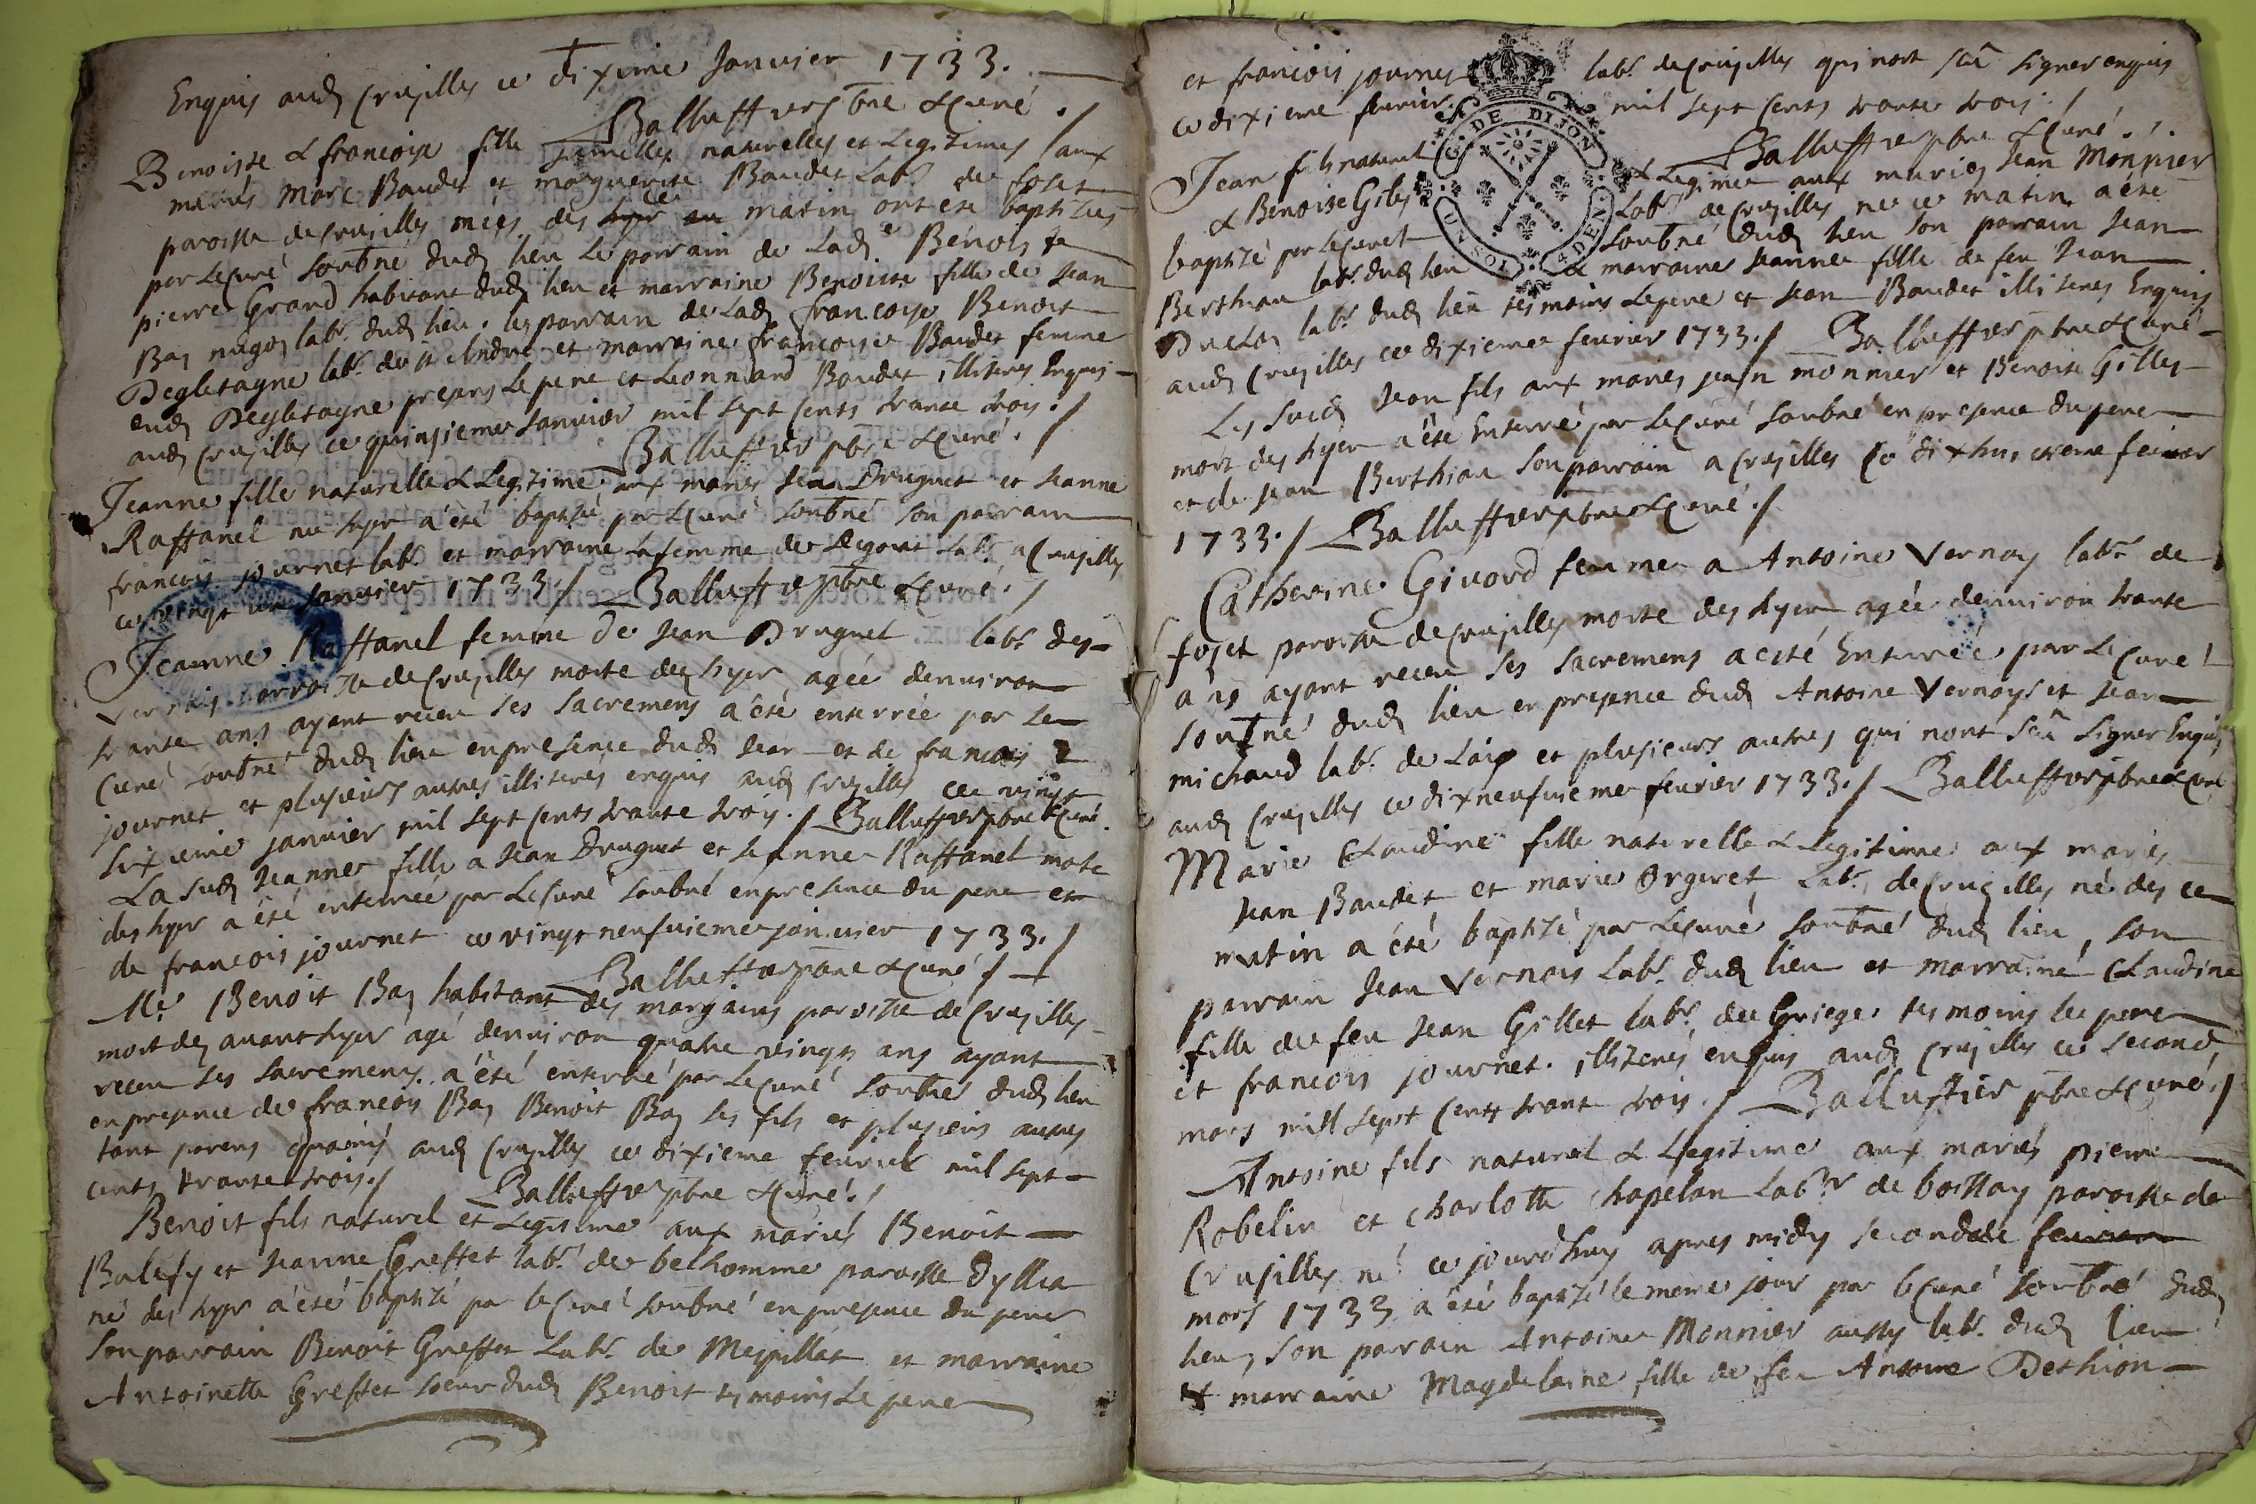 Enquis audj Crusilles ce dixieme Janvier 1733.
Balluffier pbre & Curé ./
Benoiste & francoise fille jumelles naturelles et Legitimes aux
mariés Marc Baudet et marguerite Baudet Labr de foset
paroisse de Crusilles nées des ce matin ont été baptisées
par Le Curé soubné dudj lieu Le parrain de Ladj Benoiste
pierre Grand habitant dudj lieu et marraine Benoiste fille de Jean
Baj labr dudj lieu. les parrain de Ladj francoise Benoit
Degletagne labr de st Andre et marraine francoise Baudet femme
dudj Degletagne presens Le pere et Leonnard Baudet illiteres Enquis
audj Crusilles ce quinsieme Janvier mil sept Cents trante trois ./
Balluffier pbre & Curé ./
Jeanne fille naturelle & Legitime aux mariés Jean Druguet et Jeanne
Raffanel née hyer a été baptisé par Le Curé soubné son parrain
francois journet labr et marraine la femme de labr a Crusilles
ce vingt janvier 1733 ./ Balluffier pbre & Curé ./
Jeanne Raffanel femme de Jean Druguet labr des
Vernais parroisse de Crusilles morte des hyer agée denviron
trante ans ayant receu ses sacremens a été enterrée par Le
Curé soubné dudj lieu en presence dudj Jean et de francois
journet et plusieurs autres illiterés enquis audj Crusilles ce vingt
sixieme janvier mil sept Cents trante trois ./ Balluffier pbre & Curé.
La sudj Jeanne fille a Jean Druguet et Jeanne Raffanel morte
des hyer a été enterrée par Le Curé soubné en presence du pere et
de francois journet ce vingt neufvieme janvier 1733 ./
Balluffier pbre & Curé ./
Me Benoit Baj habitant des margains paroisse de Crusilles
mort dej avant hyer agé denviron quatre vingts ans ayant
receu ses sacremens a été enterré par Le Curé soubné dudj lieu
en presence de francois Baj Benoit Baj ses fils et plusieurs autres
tant parens qu'amis audj Crusilles ce dixieme fevrier mil sept
cents trante trois ./ Balluffier pbre & Curé ./
Benoit fils naturel et Legitime aux mariés Benoit
Balefy et Jeanne Greffet labr de belhomme paroisse Dyllia
né des hyer a été baptisé par le Curé soubné en presence du pere
son parrain Benoit Greffet Labr de Mespillat et marraine
Antoinette Greffet soeur dudj Benoit tesmoins Le pere
et francois journet labr de Crusilles qui n'ont scû signer enquis
ce dixieme fevrier mil sept Cents trante trois ./
G. DE DIJON
4 DEN.
Balluffier pbre & Curé ./.
Jean fils naturel & Legime aux mariés Jean Monnier
& Benoite Giles Labr de Crusilles né ce matin a été
baptisé par le Curé soubné dudj lieu son parrain Jean
Berthian labr dudj lieu & marraine Jeanne fille de feu Jean
Duclos labr dudj lieu tesmoins Le pere et Jean Baudet illiteres Enquis
audj Crusilles ce dixieme fevrier 1733 ./ Balluffier pbre & Curé
Le sudj Jean fils aux mariés jean monnier et Benoite Gilles
mort des hyer a été Enterré par Le Curé soubné en presence du pere
et de Jean Berthian son parrain a Crusilles ce dixhuictieme fevrier
1733 ./ Balluffier pbre & Curé ./
Catherine Givord femme a Antoine Vernay labr de
foset paroisse de Crusilles morte des hyer agée denviron trante
ans ayant receu ses sacremens a esté Enterrée par Le Curé
soubné dudj lieu en presence dudj Antoine Vernays et Jean
michaud labr de Laip et plusieurs autres qui n'ont scû signer Enquis
audj Crusilles ce dixneufvieme fevrier 1733 ./ Balluffier pbre & Curé
Marie Claudine fille naturelle & Legitime aux mariés
Jean Baudet et marie Orgeret Labr de Crusilles né des ce
matin a été baptisé par Le Curé soubné dudj lieu, son
parrain Jean Vernois Labr dudj lieu et marraine Claudine
fille de feu Jean Gillet labr de Griege tesmoins le pere
et francois journet. illiterés enquis audj Crusilles ce second
mars mill sept Cents trante trois ./ Balluffier pbre & Curé ./
Antoine fils naturel & Legitime aux mariés pierre
Robelin et Charlotte Chapelan Labr de boissay paroisse de
Crusilles né ce jourdhuy apres midy second de fevrier
mars 1733 a été baptisé le meme jour par le Curé soubné dudj
lieu, son parain Antoine Monnier aussy labr dudj lieu
& marraine Magdelaine fille de feu Antoine Dethion